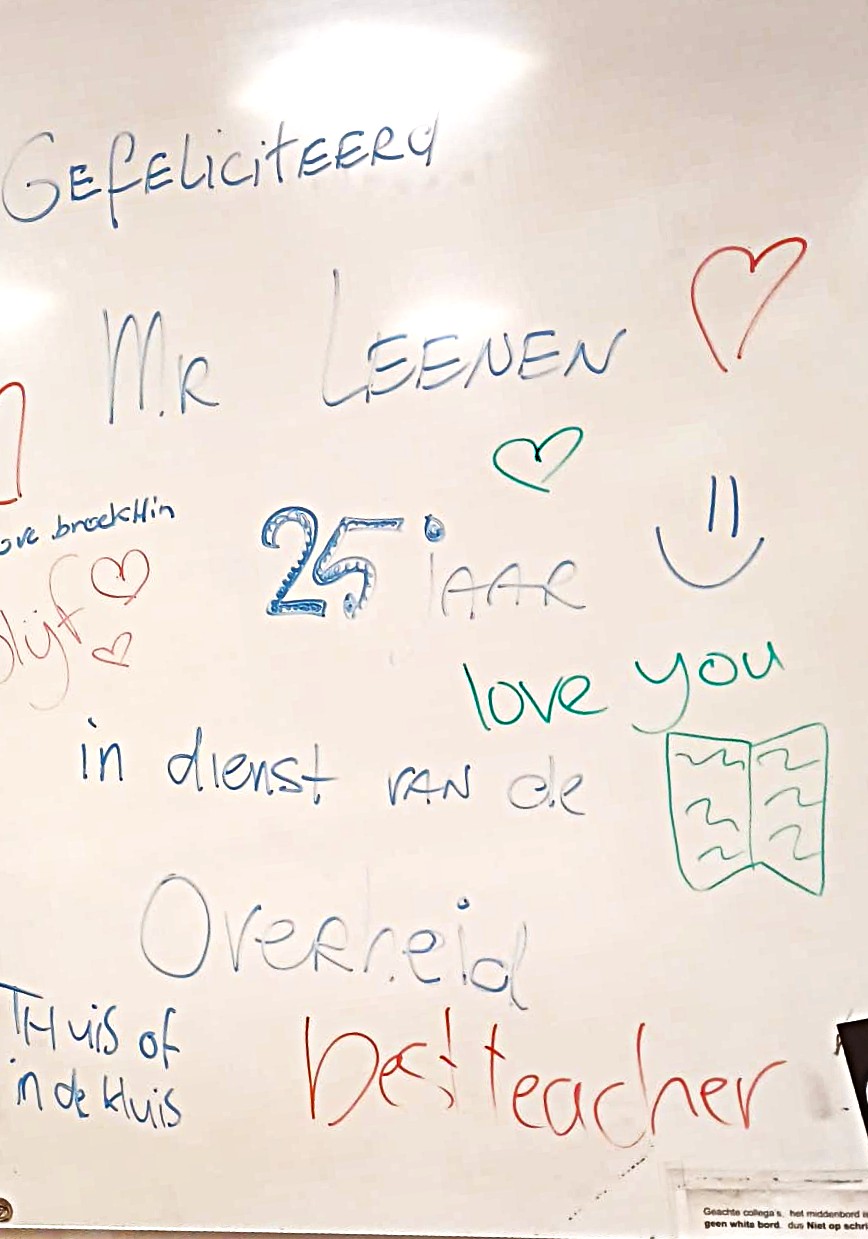 GEFELICITEERd
M.R LEENEN
ove broekHin
25 jAAR
blijf
love you
in dienst VAN de
Overheid
THuis of
in de kluis
best teacher
Geachte collega's, het middenbord is
geen white bord, dus Niet op schri